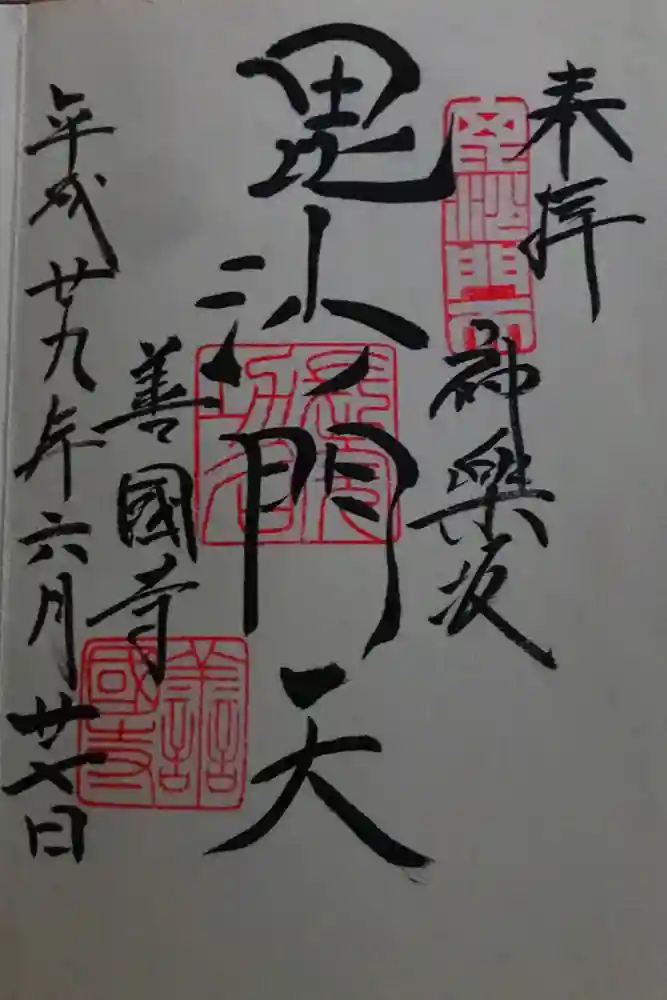 奉拝
神樂坂
毘沙門天
善國寺
平成廿九年六月廿七日